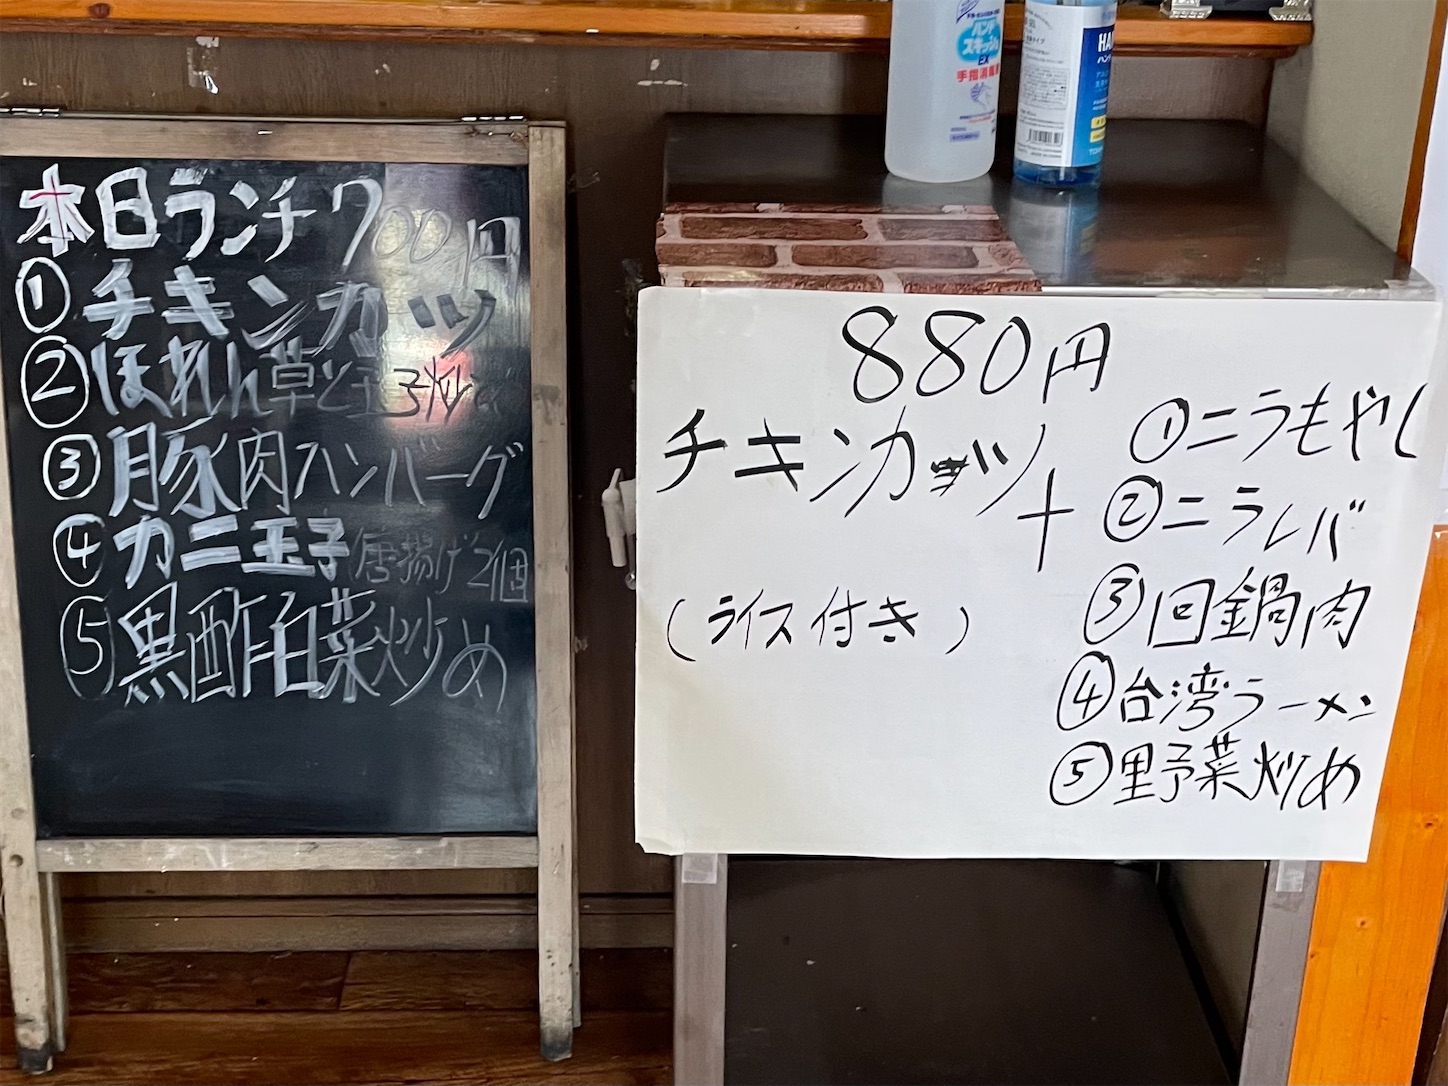 本日ランチ700円
①チキンカツ
②ほれん草と玉子炒め
③豚肉ハンバーグ
④カニ玉子唐揚げ2個
⑤黒酢白菜炒め
880円
チキンカツ+
(ライス付き)
①ニラもやし
②ニラレバ
③回鍋肉
④台湾ラーメン
⑤野菜炒め
ハンド
スキッシュ
EX
手指消毒